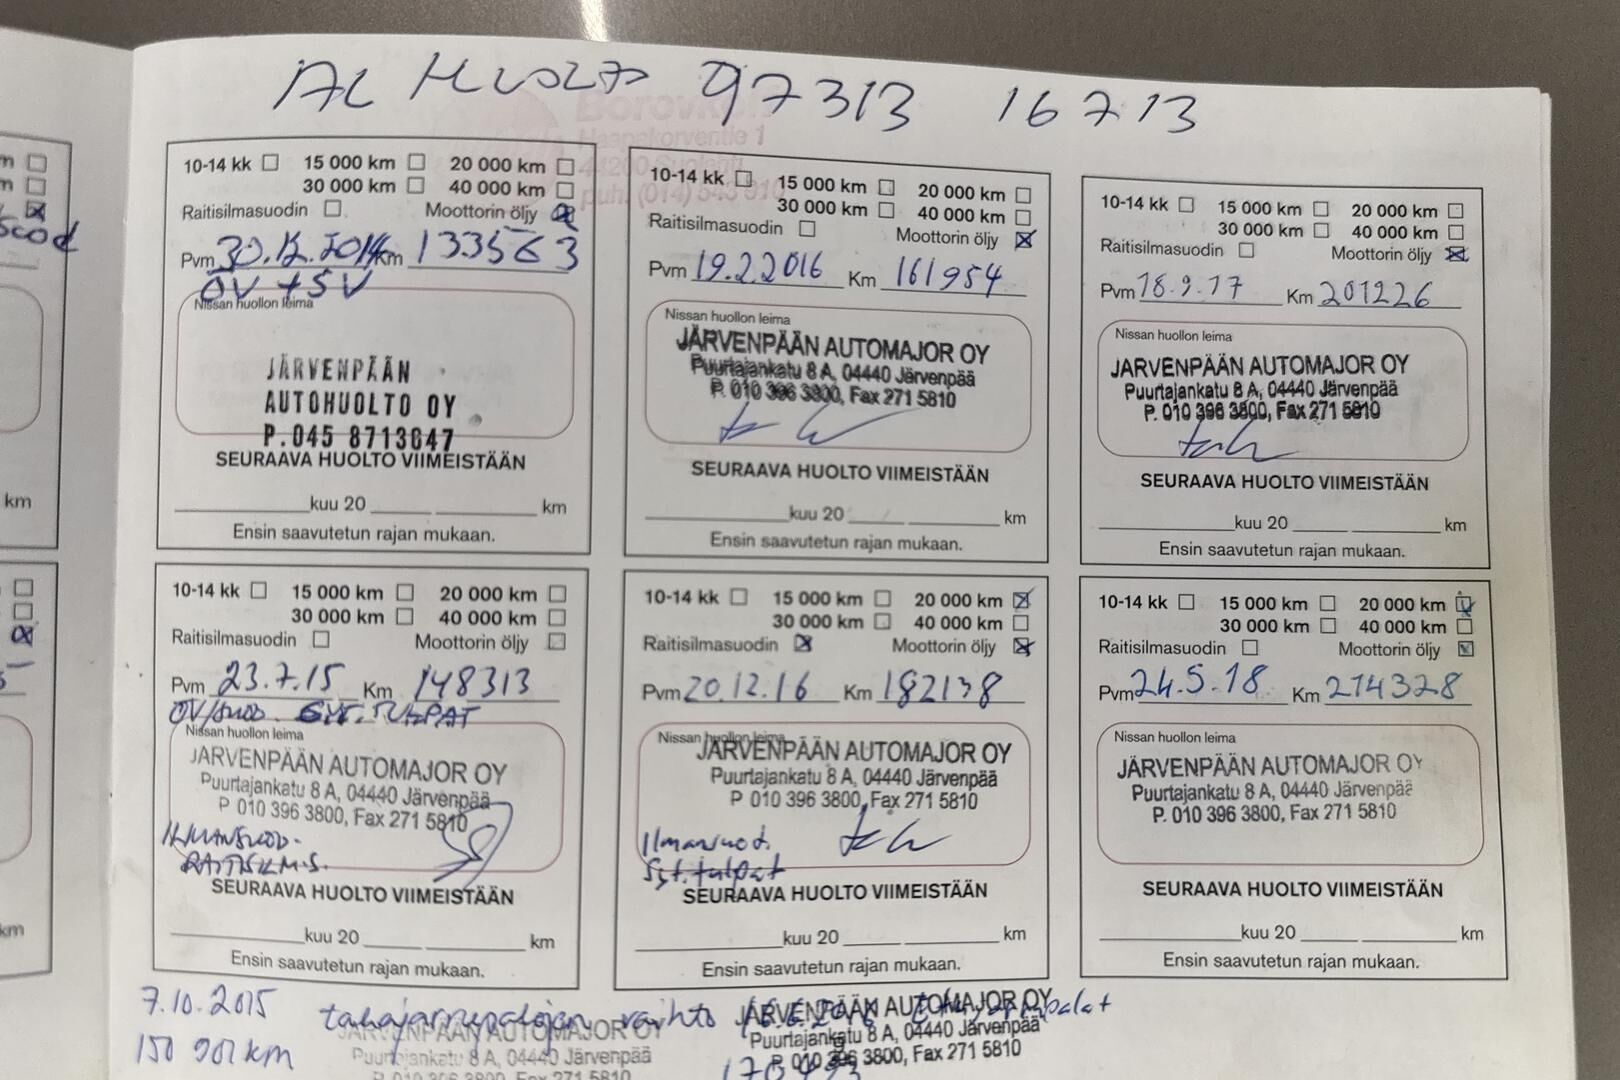 AC HUOLTO 97313 16713
Borovko
Haapakorventie 1
44200 Suolahti
puh. (014) 543 910
10-14 kk 15 000 km 20 000 km
30 000 km 40 000 km
Raitisilmasuodin Moottorin öljy
Pvm 30.12.2014 Km 133563
ÖV + SV
Nissan huollon leima
JÄRVENPÄÄN
AUTOHUOLTO OY
P.045 8713647
SEURAAVA HUOLTO VIIMEISTÄÄN
kuu 20 km
Ensin saavutetun rajan mukaan.
10-14 kk 15 000 km 20 000 km
30 000 km 40 000 km
Raitisilmasuodin Moottorin öljy
Pvm 19.2.2016 Km 161954
Nissan huollon leima
JÄRVENPÄÄN AUTOMAJOR OY
Puurtajankatu 8 A, 04440 Järvenpää
P. 010 396 3800, Fax 271 5810
SEURAAVA HUOLTO VIIMEISTÄÄN
kuu 20 km
Ensin saavutetun rajan mukaan.
10-14 kk 15 000 km 20 000 km
30 000 km 40 000 km
Raitisilmasuodin Moottorin öljy
Pvm 18.9.17 Km 201226
Nissan huollon leima
JÄRVENPÄÄN AUTOMAJOR OY
Puurtajankatu 8 A, 04440 Järvenpää
P. 010 396 3800, Fax 271 5810
SEURAAVA HUOLTO VIIMEISTÄÄN
kuu 20 km
Ensin saavutetun rajan mukaan.
10-14 kk 15 000 km 20 000 km
30 000 km 40 000 km
Raitisilmasuodin Moottorin öljy
Pvm 23.7.15 Km 148313
ÖV/SUOD. SYT.TULPAT
Nissan huollon leima
JÄRVENPÄÄN AUTOMAJOR OY
Puurtajankatu 8 A, 04440 Järvenpää
P 010 396 3800, Fax 271 5810
ILMANSUOD.
RAITISILM.S.
SEURAAVA HUOLTO VIIMEISTÄÄN
kuu 20 km
Ensin saavutetun rajan mukaan.
10-14 kk 15 000 km 20 000 km
30 000 km 40 000 km
Raitisilmasuodin Moottorin öljy
Pvm 20.12.16 Km 182138
Nissan huollon leima
JÄRVENPÄÄN AUTOMAJOR OY
Puurtajankatu 8 A, 04440 Järvenpää
P 010 396 3800, Fax 271 5810
Ilmansuod.
Syt.tulpat
SEURAAVA HUOLTO VIIMEISTÄÄN
kuu 20 km
Ensin saavutetun rajan mukaan.
10-14 kk 15 000 km 20 000 km
30 000 km 40 000 km
Raitisilmasuodin Moottorin öljy
Pvm 24.5.18 Km 214328
Nissan huollon leima
JÄRVENPÄÄN AUTOMAJOR OY
Puurtajankatu 8 A, 04440 Järvenpää
P. 010 396 3800, Fax 271 5810
SEURAAVA HUOLTO VIIMEISTÄÄN
kuu 20 km
Ensin saavutetun rajan mukaan.
7.10.2015 takajarrupalojen vaihto
150 901 km
JÄRVENPÄÄN AUTOMAJOR OY
Puurtajankatu 8 A, 04440 Järvenpää
P 010 396 3800, Fax 271 5810
JÄRVENPÄÄN AUTOMAJOR OY
Puurtajankatu 8 A, 04440 Järvenpää
P. 010 396 3800, Fax 271 5810
km
km